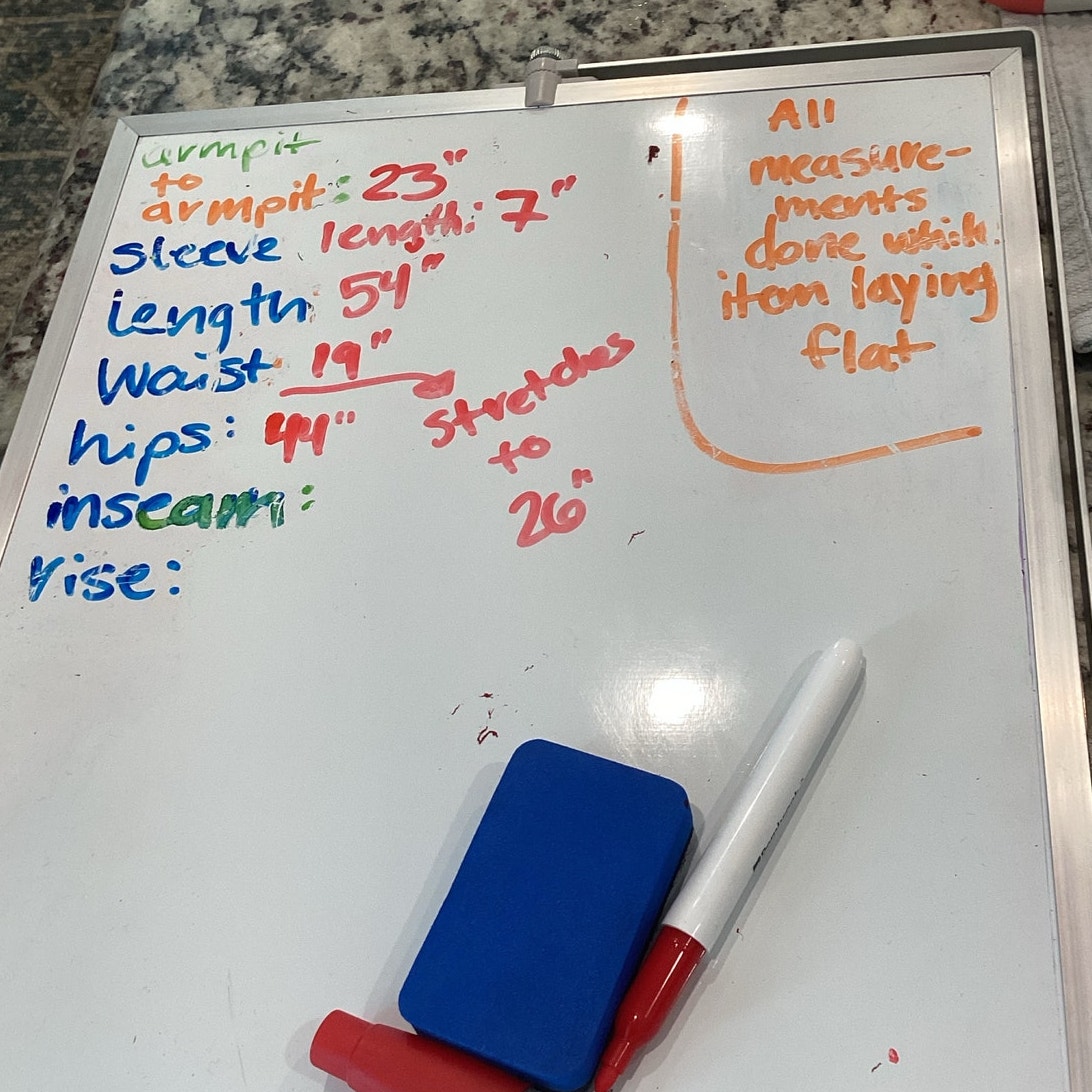 armpit
to
armpit: 23"
sleeve length: 7"
length: 54"
Waist 19"
stretches
to
26"
hips: 44"
inseam:
rise:
All
measure-
ments
done
item laying
flat